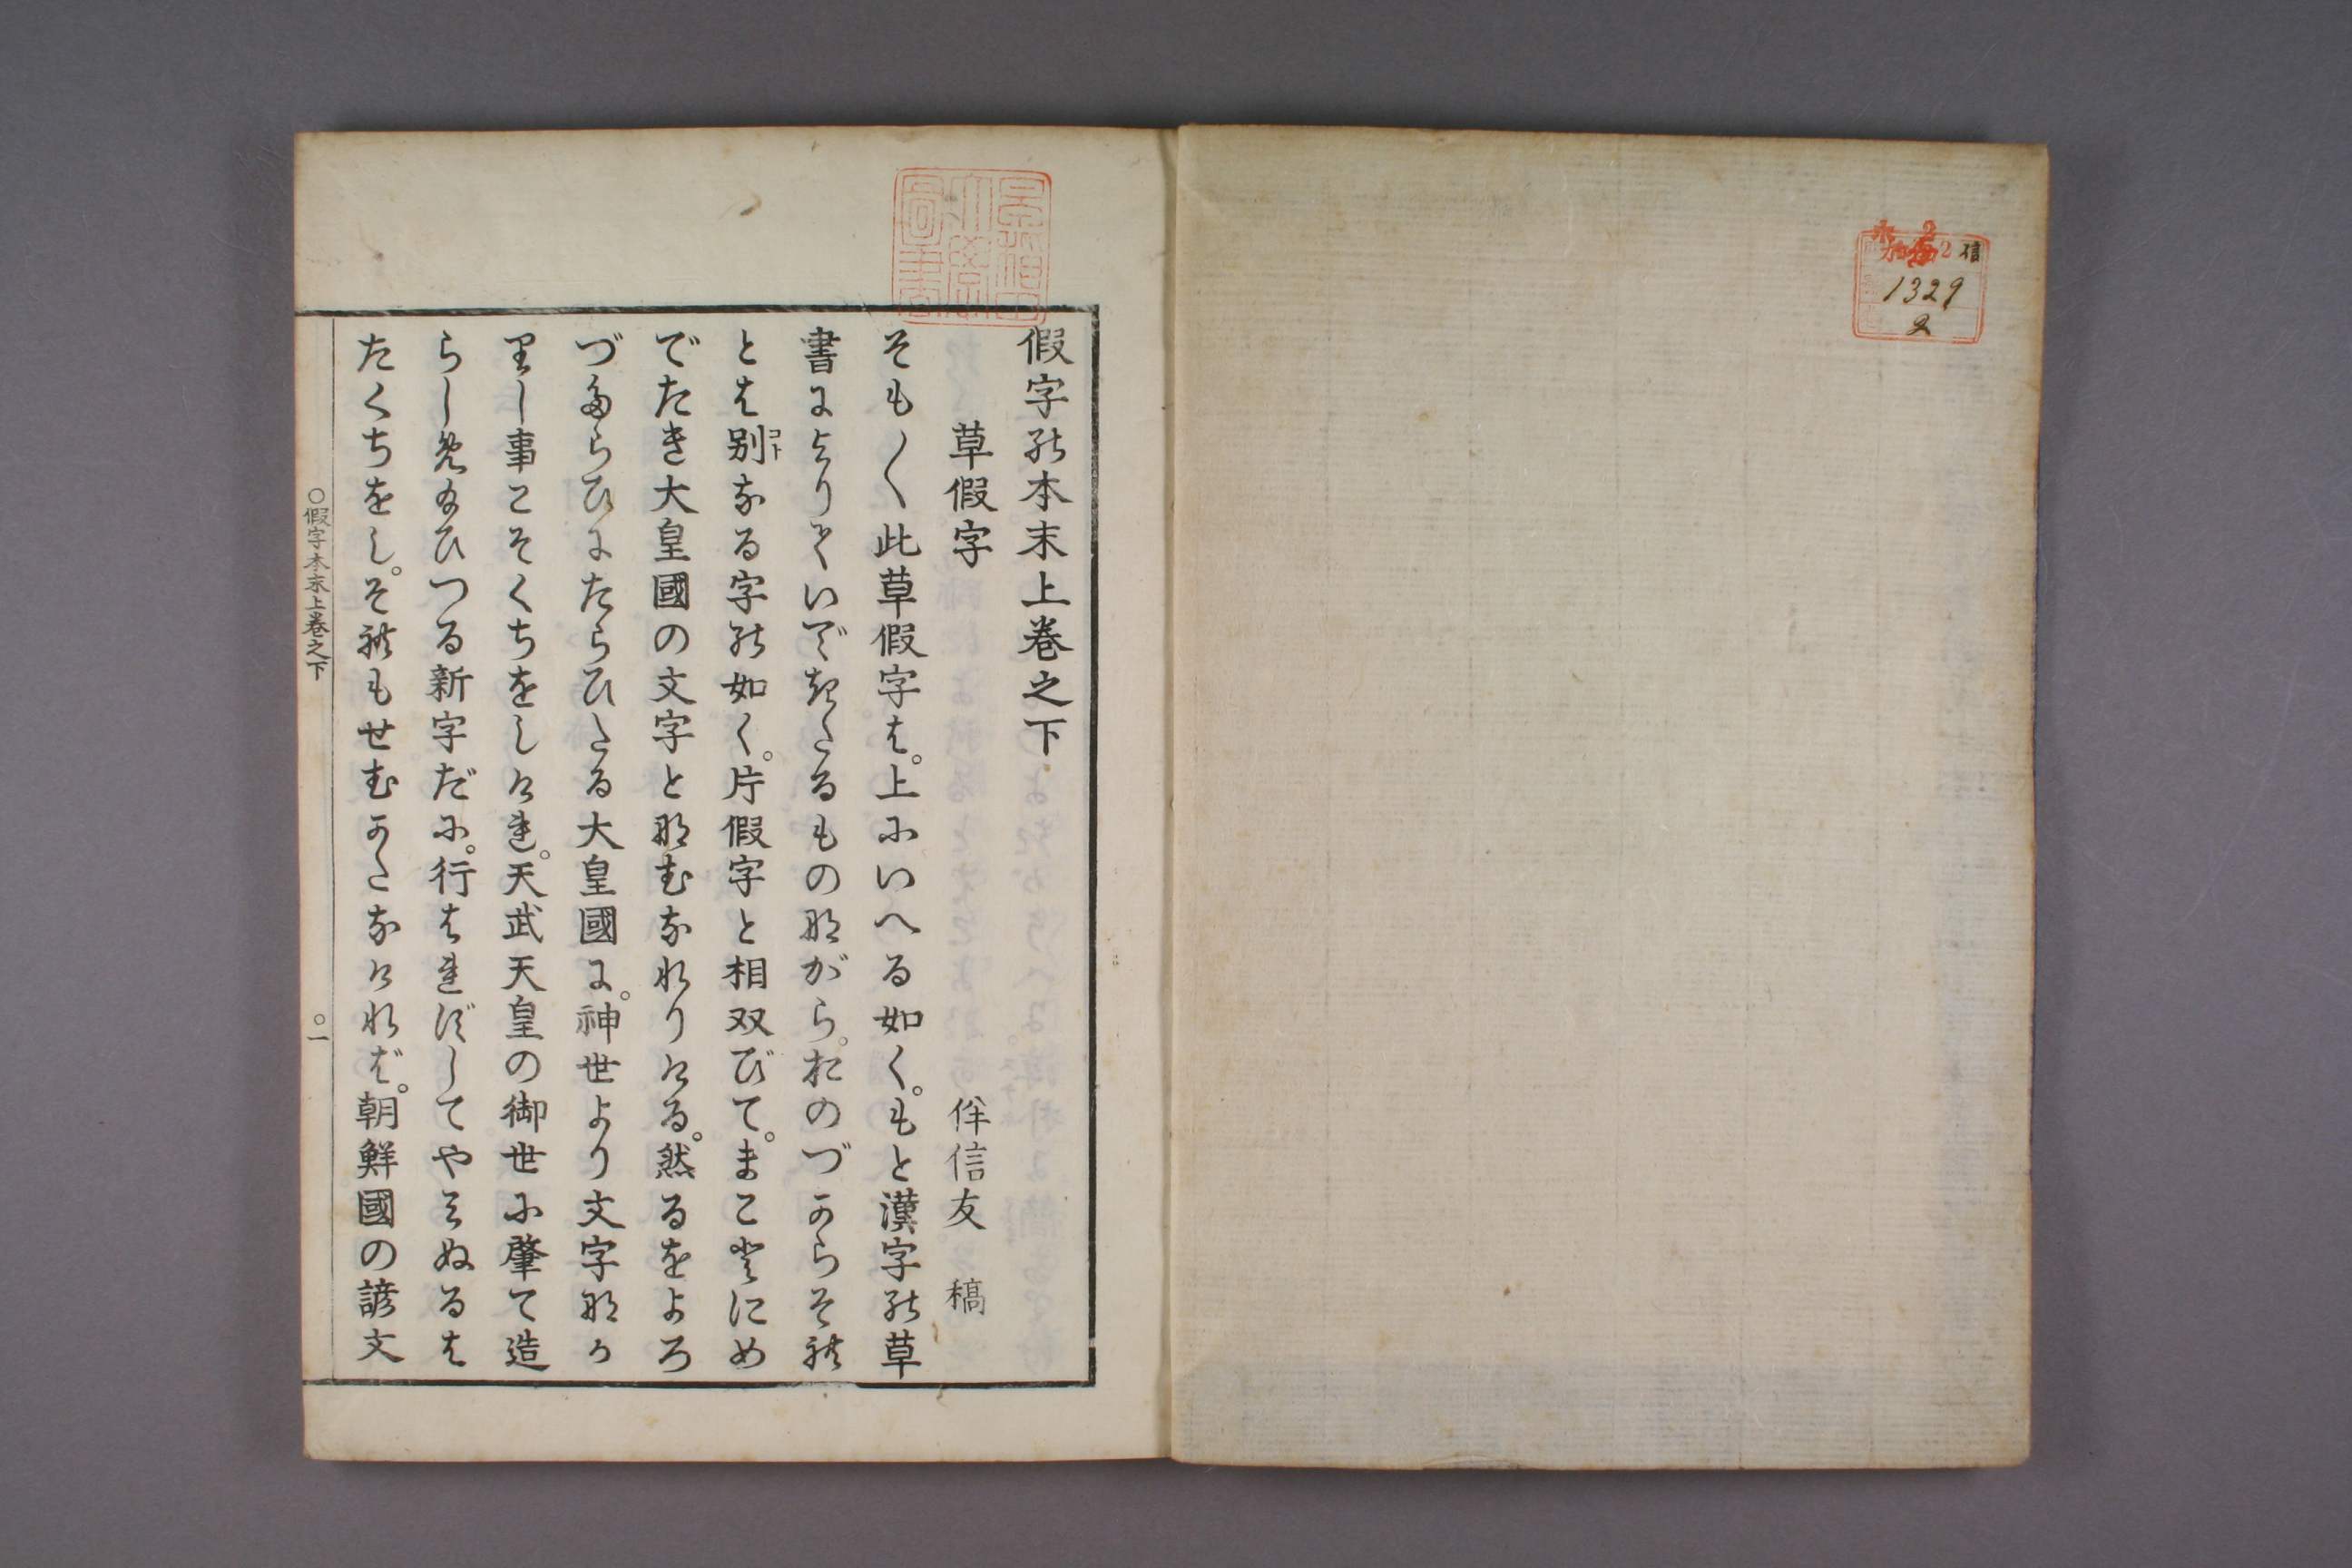 信
1329
2
假字能本末上巻之下
草假字
伴信友 稿
そも〱此草假字は。上にいへる如く。もと漢字の草
書によりていできたるものながら。おのづからそれ
とは別なる字の如く。片假字と相双びて。まことにめ
コト
でたき大皇國の文字となむなれりける。然るをよろ
づたらひにたらひたる大皇國に。神世より文字なか
りし事こそくちをしけれ。天武天皇の御世に肇て造
らしめ給ひつる新字だに。行はれずしてやみぬるは
たくちをし。それもせむかたなければ。朝鮮國の諺文
○假字本末上巻之下
○一